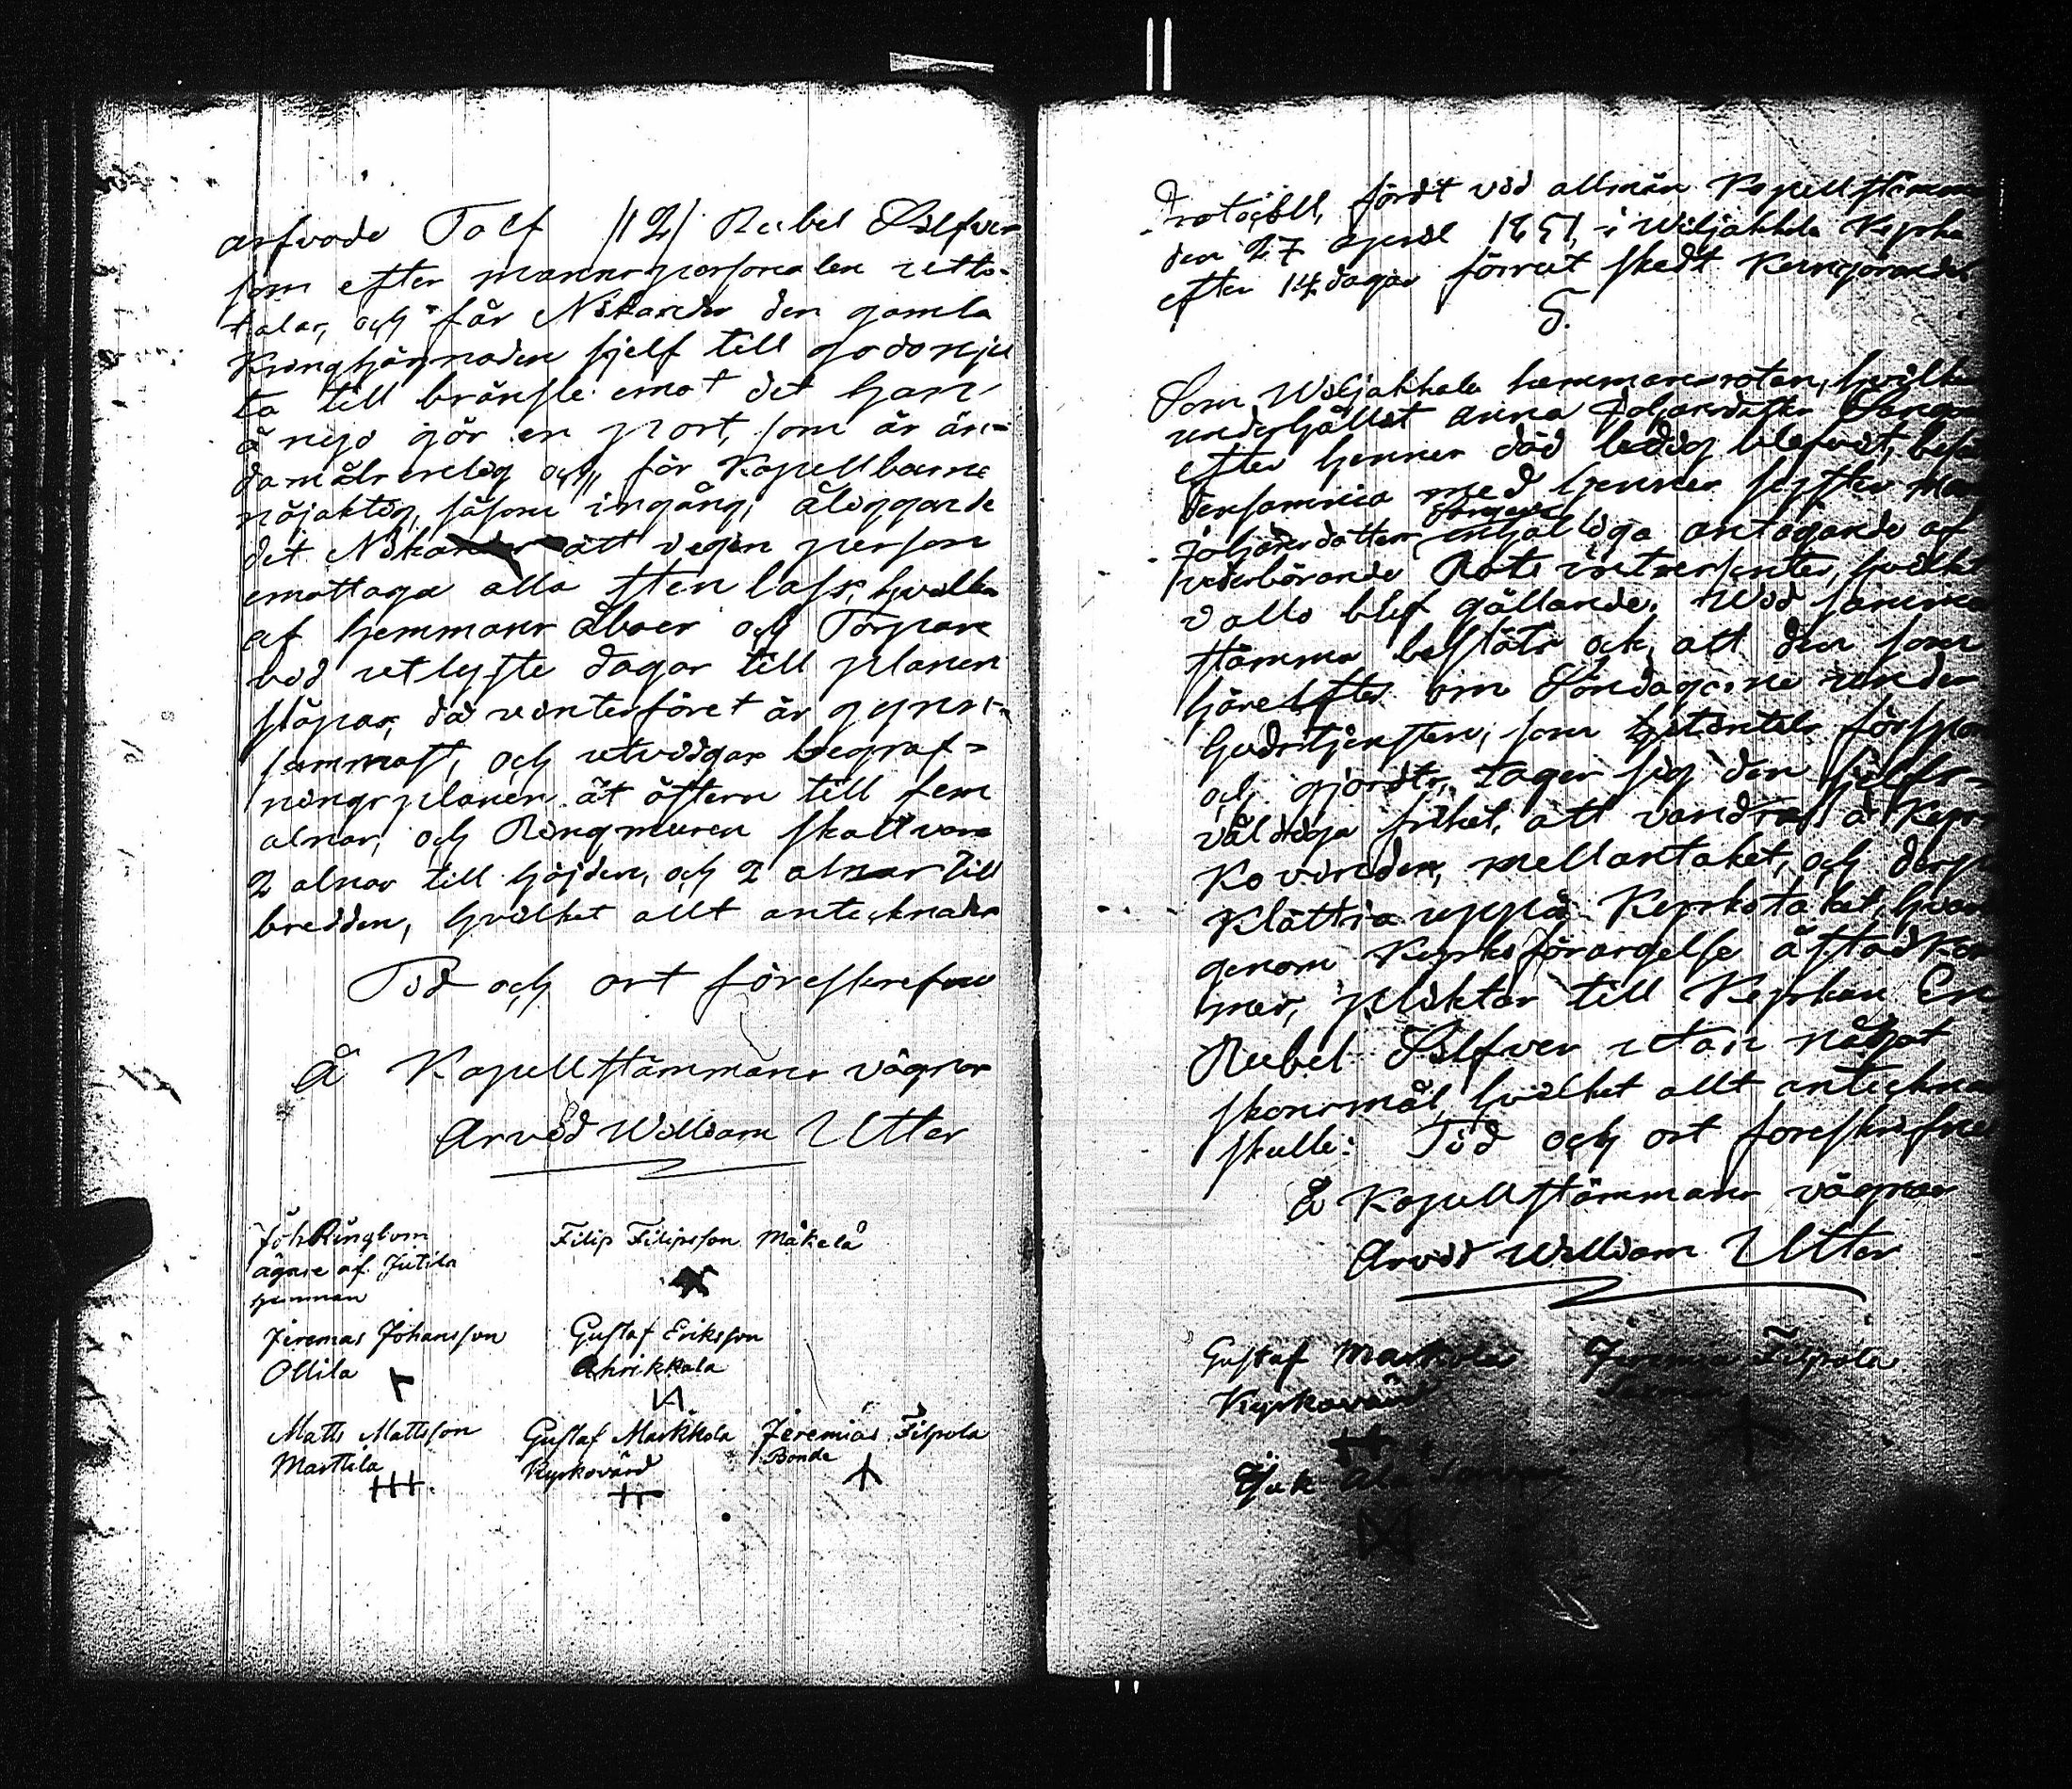 arfvode Tolf /12/ Rubel Silfver
som efter manns personalen utta-
talar, och får Nikander den gamla
Kringhägnaden sjelf till godo nju
ta till bränsle emot det han
å nyo gör en port, som är än-
damålsenlig och för Kapellboerne
nöjaktig, såsom ingång; åliggande
det Nikander att i egen person
emottaga alla stenlass, hvilka
af hemmans åboer och Torpare
vid utlyste dagar till planen
släpas, då vinterföret är gynn-
sammast, och utvidgas begraf-
ningsplanen åt östern till fem
alnar, och Ringmuren skall vara
2 alnar till höjden, och 2 alnar till
bredden, hvilket allt antecknades
Tid och ort föreskrefne
Å Kapellstämmans vägnar
Arvid William Utter
Joh Ringbom
ägare af Jutila
hemman
Filip Filipsson Mäkelä
Jeremas Johansson
Ollila
Gustaf Eriksson
Ahrikkala
Matts Mattsson
Marttila
Gustaf Markkola
Kyrkovärd
Jeremias Filpola
Bonde
Protocoll, fördt vid allmän Kapellstämma
den 27 April 1851, i Wiljakkala Kyrka
efter 14 dagar förrut skedt kungörande
§.
Som Wiljakkala hemmans roten, hvilken
underhållit Anna Johansdotter
efter hennes död ledig blefvit,
densamma med hennes syster
Johansdotter enhälliga antagande af
vederbörande Rote intressenter, hvilket
i allo blef gällande. Wid samma
stämma beslöts ock, att den som
härefter om Söndagarne under
Gudstjensten, som hitintils försports
och gjordts, tager sig den sjelfs-
våldiga frihet, att vandra å Kyr
kovinden, mellantaket, och derp
klättra uppå Kyrkotaket, hvar
genom Kyrkoförargelse åstadkom
mes, pliktar till Kyrkan En
Rubel Silfver utan något
skonsmål, hvilket allt anteckna
skulle: Tid och ort foreskrifne
Å Kapellstämmans vägnar
Arvid William Utter
Gustaf Markola
Kyrkovärd
Jeremia Filpola